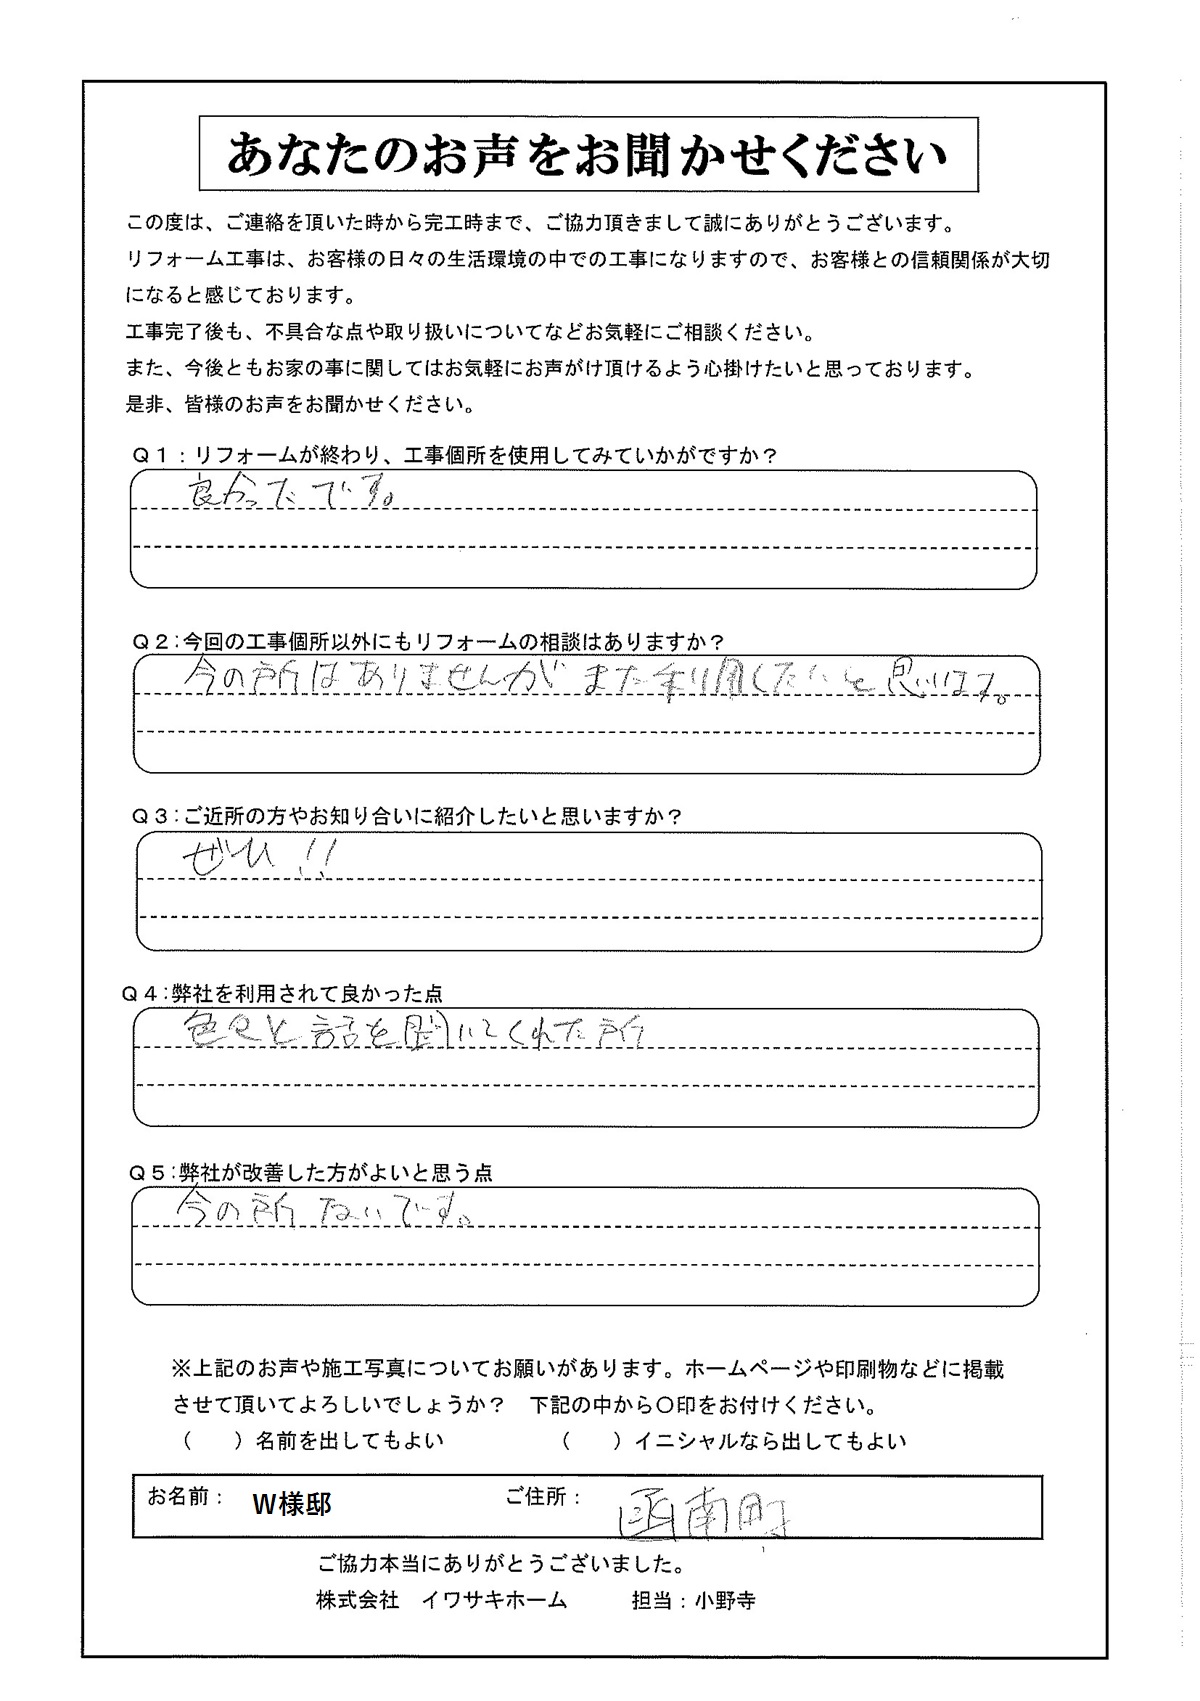 あなたのお声をお聞かせください
この度は、ご連絡を頂いた時から完工時まで、ご協力頂きまして誠にありがとうございます。
リフォーム工事は、お客様の日々の生活環境の中での工事になりますので、お客様との信頼関係が大切
になると感じております。
工事完了後も、不具合な点や取り扱いについてなどお気軽にご相談ください。
また、今後ともお家の事に関してはお気軽にお声がけ頂けるよう心掛けたいと思っております。
是非、皆様のお声をお聞かせください。
Q1：リフォームが終わり、工事個所を使用してみていかがですか？
良かったです。
Q2：今回の工事個所以外にもリフォームの相談はありますか？
今の所はありませんがまた利用したいと思います。
Q3：ご近所の方やお知り合いに紹介したいと思いますか？
ぜひ!!
Q4：弊社を利用されて良かった点
色々と話を聞いてくれた所
Q5：弊社が改善した方がよいと思う点
今の所ないです。
※上記のお声や施工写真についてお願いがあります。ホームページや印刷物などに掲載
させて頂いてよろしいでしょうか？　下記の中から〇印をお付けください。
（　　）名前を出してもよい　　（　　）イニシャルなら出してもよい
お名前：　W様邸　　ご住所：　函南町
ご協力本当にありがとうございました。
株式会社　イワサキホーム　　担当：小野寺